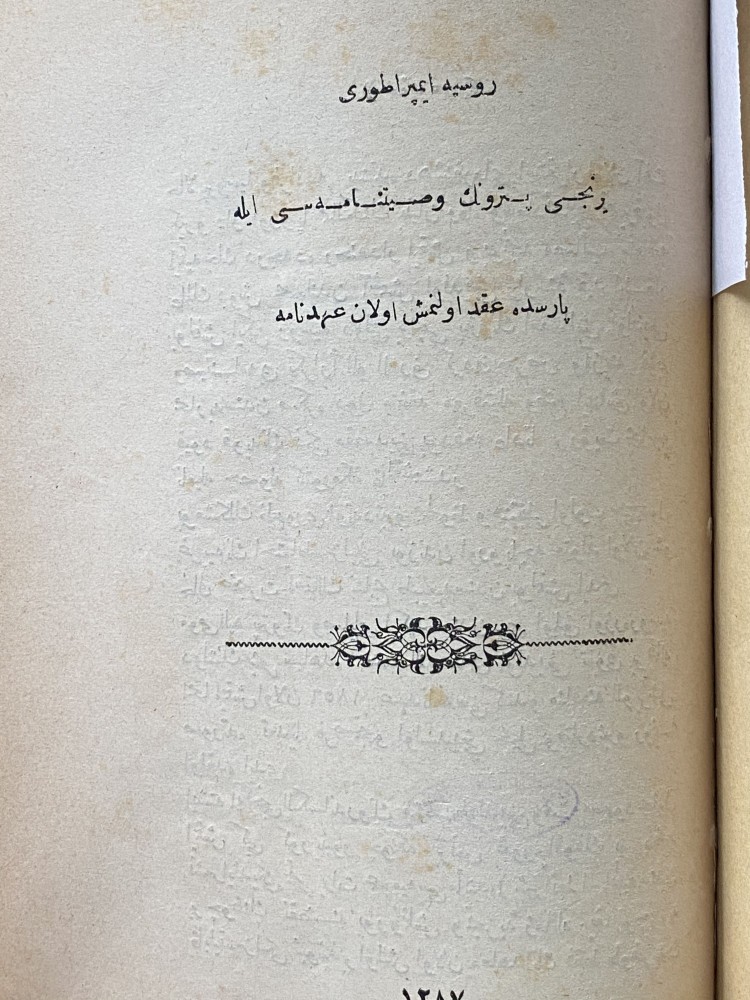 روسیه ایمپراطوری
برنجی پترونك وصیتنامه‌سی ایله
پارسده عقد اولنمش اولان عهدنامه
١٢٨٧